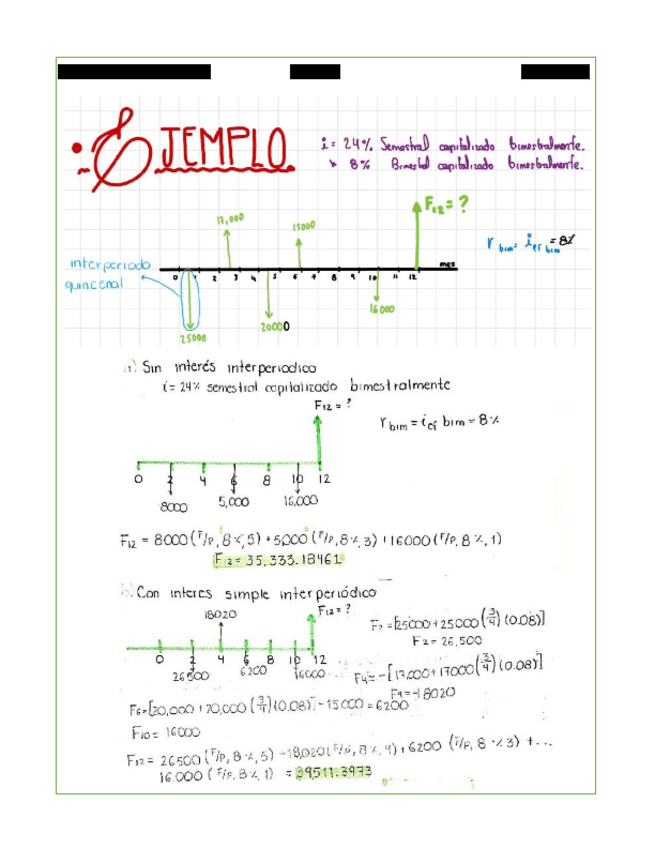 EJEMPLO
i = 24% Semestral capitalizado bimestralmente.
↳ 8% Bimestal capitalizado bimestralmente.
F12 = ?
17,000
15000
r bim = i ef bim = 8%
interperiodo
quincenal
mes
0 1 2 3 4 5 6 7 8 9 10 11 12
25000
20000
16000
a) Sin interés interperiodico
i = 24% semestral capitalizado bimestralmente
F12 = ?
r bim = i ef bim = 8%
0 2 4 6 8 10 12
8000
5,000
16,000
F12 = 8000 (F/P, 8%, 5) + 5,000 (F/P, 8%, 3) + 16000 (F/P, 8%, 1)
F12 = 35,333.18461
b. Con interes simple interperiódico
18020
F12 = ?
F2 = [25000 + 25000 (3/4) (0.08)]
F2 = 26,500
0 2 4 6 8 10 12
26500
6200
16000
F4 = -[17000 + 17000 (3/4) (0.08)]
F4 = -18020
F6 = [20,000 + 20,000 (3/4) (0.08)] - 15000 = 6200
F10 = 16000
F12 = 26500 (F/P, 8%, 5) - 18,020 (F/P, 8%, 4) + 6200 (F/P, 8%, 3) + ...
16.000 (F/P, 8%, 1) = 39,511.3973